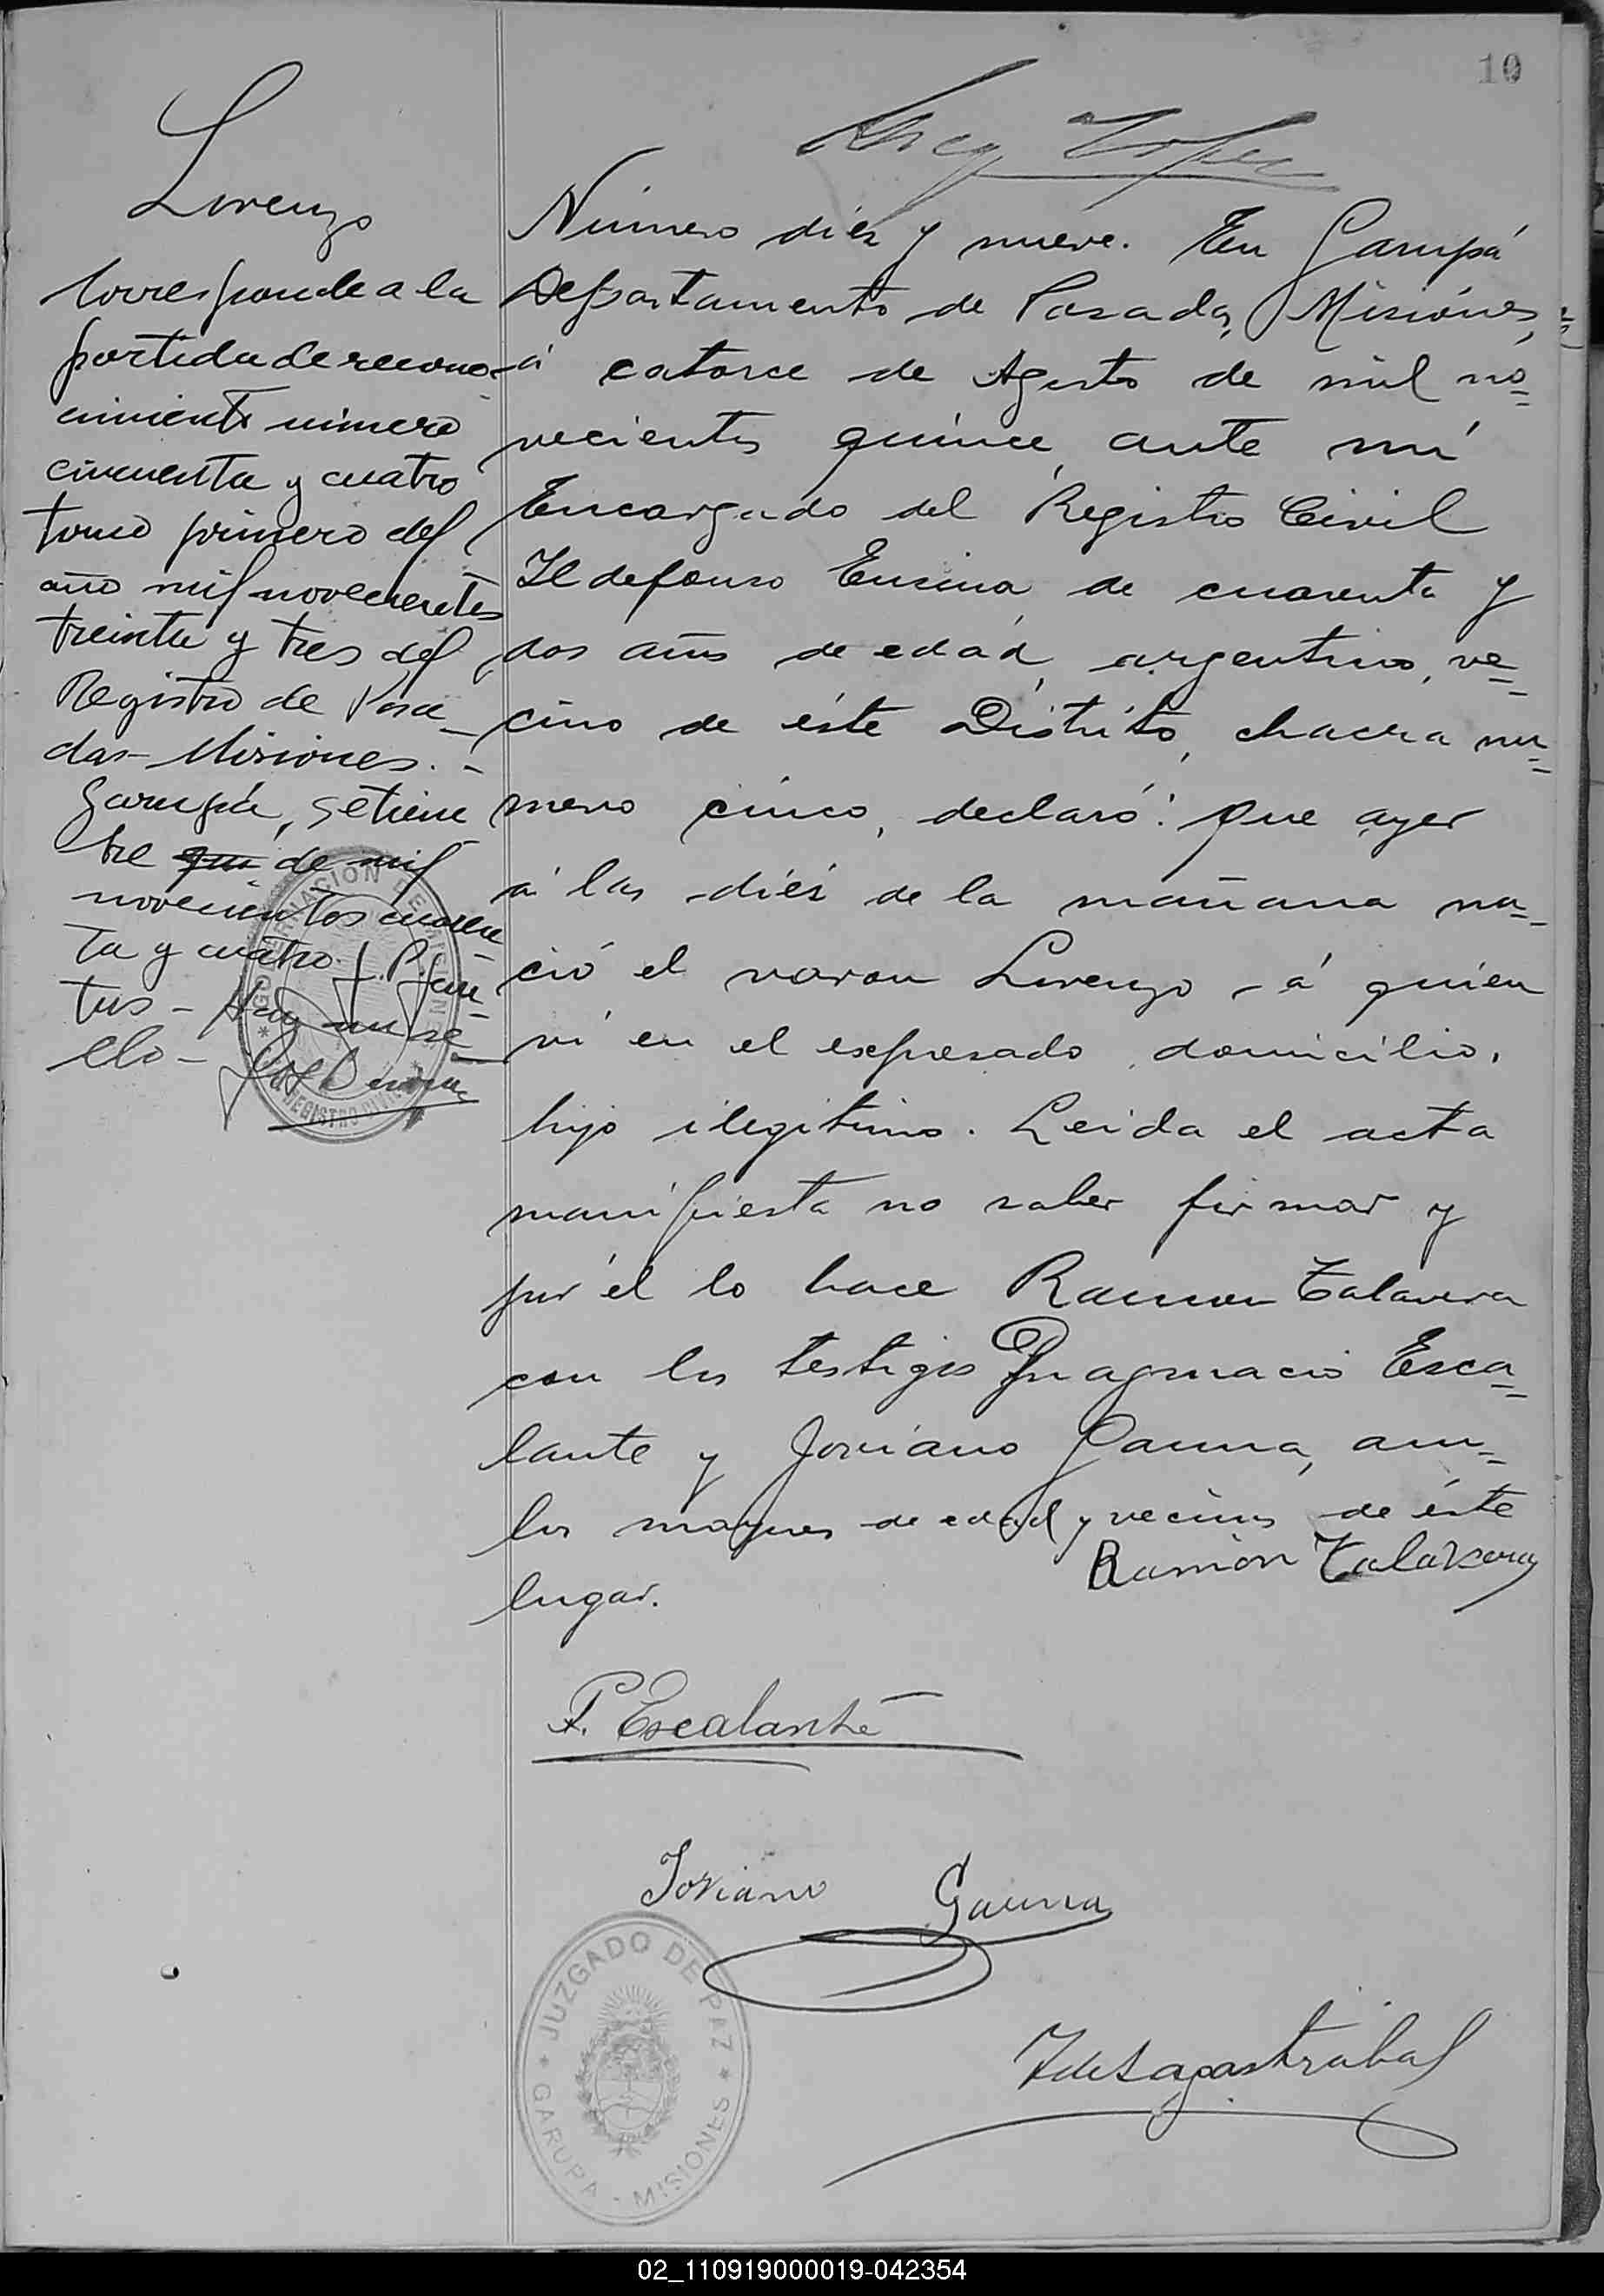 10
Lorenzo
Corresponde a la
partida de recono-
cimiento número
cincuenta y cuatro
tomo primero del
año mil novecientos
treinta y tres del
Registro de Posa-
das-Misiones.-
Garupá, Setiem
bre de mil
novecientos cuaren
ta y cuatro.
Hay un se-
llo-
Número diez y nueve. En Garupá
Departamento de Posadas, Misiones,
á catorce de Agosto de mil no=
vecientos quince, ante mí
Encargado del Registro Civil
Ildefonso Encina, de cuarenta y
dos años de edad, argentino, ve=
cino de éste Distrito, chacra nu=
mero cinco, declaró: Que ayer
á las diez de la mañana na=
ció el varon Lorenzo, á quien
ví en el expresado domicilio,
hijo ilegitimo. Leida el acta
manifiesta no saber firmar y
por él lo hace Ramon Talavera
con los testigos Esca=
lante y Joviano Gauna, am=
bos mayores de edad y vecinos de éste
lugar.
Ramón Talavera
P. Escalante
Joviano Gauna
JUZGADO DE PAZ
GARUPA - MISIONES
GOBERNACION DE MISIONES
REGISTRO CIVIL
02_110919000019-042354